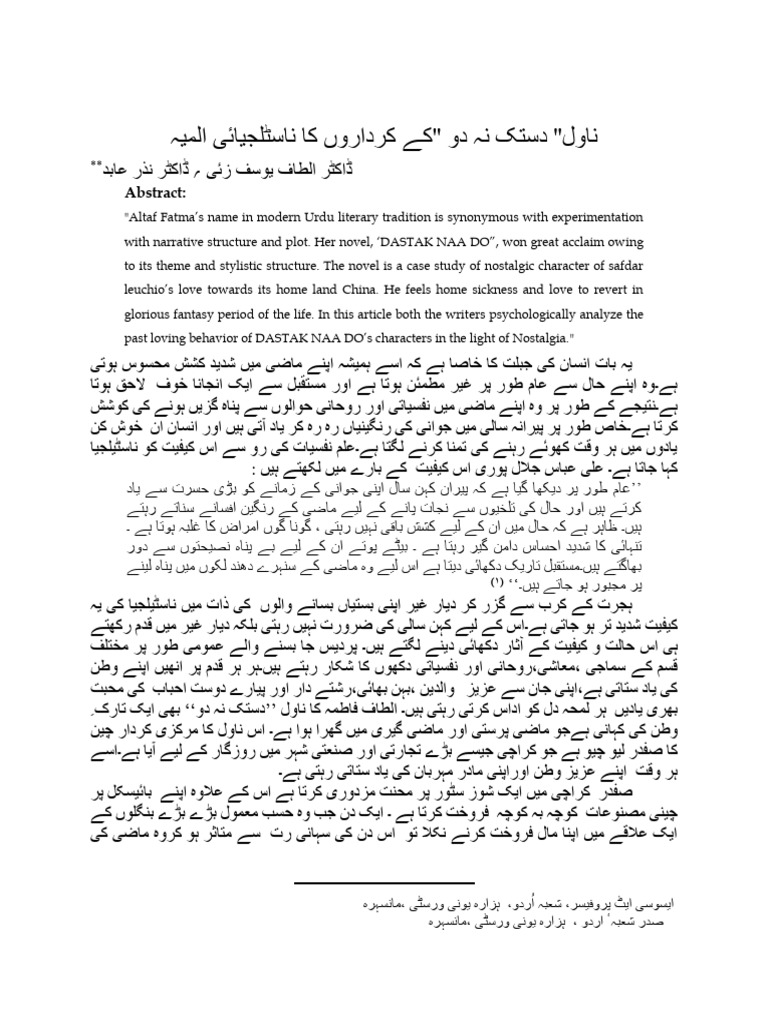 ناول" دستک نہ دو "کے کرداروں کا ناسٹلجیائی المیہ
ڈاکٹر الطاف یوسف زئی ؍ ڈاکٹر نذر عابد**
Abstract:
"Altaf Fatma’s name in modern Urdu literary tradition is synonymous with experimentation
with narrative structure and plot. Her novel, ‘DASTAK NAA DO”, won great acclaim owing
to its theme and stylistic structure. The novel is a case study of nostalgic character of safdar
leuchio’s love towards its home land China. He feels home sickness and love to revert in
glorious fantasy period of the life. In this article both the writers psychologically analyze the
past loving behavior of DASTAK NAA DO’s characters in the light of Nostalgia."
یہ بات انسان کی جبلت کا خاصا ہے کہ اسے ہمیشہ اپنے ماضی میں شدید کشش محسوس ہوتی
ہے۔وہ اپنے حال سے عام طور پر غیر مطمئن ہوتا ہے اور مستقبل سے ایک انجانا خوف لاحق ہوتا
ہے۔نتیجے کے طور پر وہ اپنے ماضی میں نفسیاتی اور روحانی حوالوں سے پناہ گزیں ہونے کی کوشش
کرتا ہے۔خاص طور پر پیرانہ سالی میں جوانی کی رنگینیاں رہ رہ کر یاد آتی ہیں اور انسان ان خوش کن
یادوں میں ہر وقت کھوئے رہنے کی تمنا کرنے لگتا ہے۔علم نفسیات کی رو سے اس کیفیت کو ناسٹیلجیا
کہا جاتا ہے۔ علی عباس جلال پوری اس کیفیت کے بارے میں لکھتے ہیں :
’’عام طور پر دیکھا گیا ہے کہ پیران کہن سال اپنی جوانی کے زمانے کو بڑی حسرت سے یاد
کرتے ہیں اور حال کی تلخیوں سے نجات پانے کے لیے ماضی کے رنگین افسانے سناتے رہتے
ہیں۔ ظاہر ہے کہ حال میں ان کے لیے کشش باقی نہیں رہتی ، گونا گوں امراض کا غلبہ ہوتا ہے ۔
تنہائی کا شدید احساس دامن گیر رہتا ہے ۔ بیٹے پوتے ان کے لیے بے پناہ نصیحتوں سے دور
بھاگتے ہیں۔مستقبل تاریک دکھائی دیتا ہے اس لیے وہ ماضی کے سنہرے دھند لکوں میں پناہ لینے
پر مجبور ہو جاتے ہیں۔‘‘ (۱)
ہجرت کے کرب سے گزر کر دیار غیر اپنی بستیاں بسانے والوں کی ذات میں ناسٹیلجیا کی یہ
کیفیت شدید تر ہو جاتی ہے۔اس کے لیے کہن سالی کی ضرورت نہیں رہتی بلکہ دیار غیر میں قدم رکھتے
ہی اس حالت و کیفیت کے آثار دکھائی دینے لگتے ہیں۔ پردیس جا بسنے والے عمومی طور پر مختلف
قسم کے سماجی ،معاشی،روحانی اور نفسیاتی دکھوں کا شکار رہتے ہیں۔ہر ہر قدم پر انھیں اپنے وطن
کی یاد ستاتی ہے،اپنی جان سے عزیز والدین ،بہن بھائی،رشتے دار اور پیارے دوست احباب کی محبت
بھری یادیں ہر لمحہ دل کو اداس کرتی رہتی ہیں۔ الطاف فاطمہ کا ناول ’’دستک نہ دو‘‘ بھی ایک تارکِ
وطن کی کہانی ہےجو ماضی پرستی اور ماضی گیری میں گھرا ہوا ہے۔ اس ناول کا مرکزی کردار چین
کا صفدر لیو چیو ہے جو کراچی جیسے بڑے تجارتی اور صنعتی شہر میں روزگار کے لیے آیا ہے۔اسے
ہر وقت اپنے عزیز وطن اوراپنی مادر مہربان کی یاد ستاتی رہتی ہے۔
صفدر کراچی میں ایک شوز سٹور پر محنت مزدوری کرتا ہے اس کے علاوہ اپنے بائیسکل پر
چینی مصنوعات کوچہ بہ کوچہ فروخت کرتا ہے ۔ ایک دن جب وہ حسب معمول بڑے بڑے بنگلوں کے
ایک علاقے میں اپنا مال فروخت کرنے نکلا تو اس دن کی سہانی رت سے متاثر ہو کروہ ماضی کی
ایسوسی ایٹ پروفیسر، شعبہ اُردو، ہزارہ یونی ورسٹی ،مانسہرہ
صدر شعبہٴ اردو ، ہزارہ یونی ورسٹی ،مانسہرہ